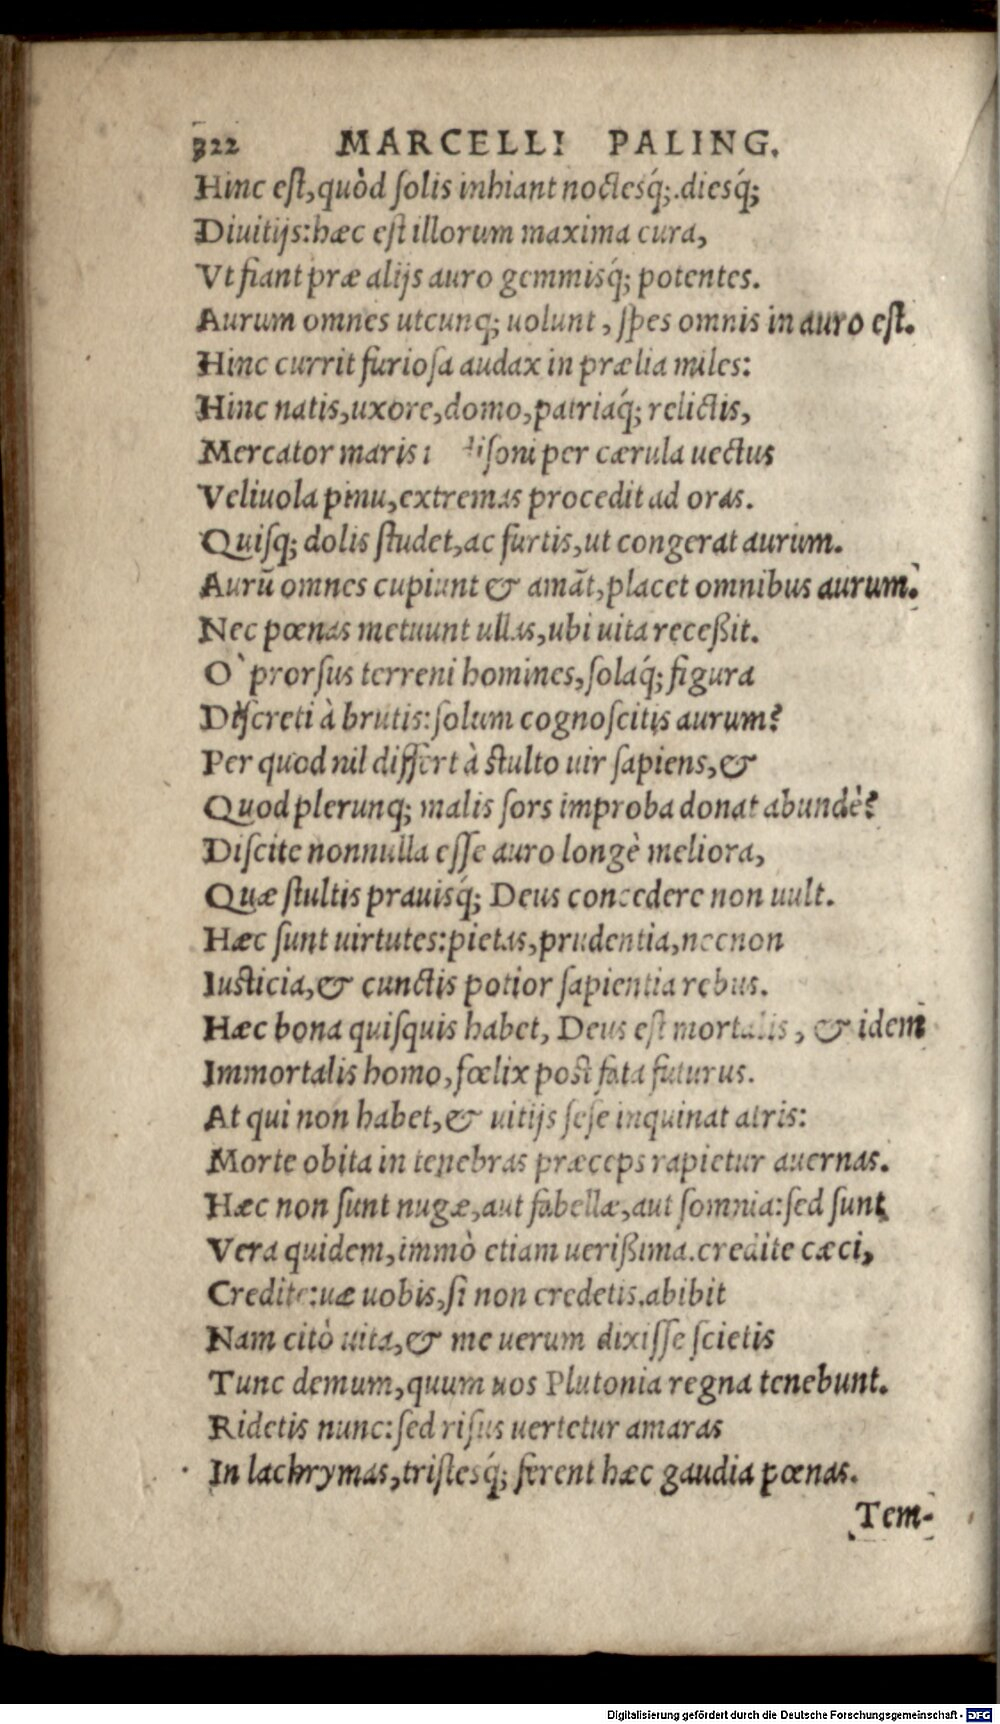 322 MARCELLI PALING.
Hinc eſt, quòd ſolis inhiant noctesq́;. diesq́;
Diuitijs: hæc eſt illorum maxima cura,
Vt fiant præ alijs auro gemmisq́; potentes.
Aurum omnes utcunq; uolunt, ſpes omnis in auro eſt.
Hinc currit furioſa audax in prælia miles:
Hinc natis, uxore, domo, patriaq́; relictis,
Mercator maris ſoni per cærula uectus
Veliuola pinu, extremas procedit ad oras.
Quiſq; dolis ſtudet, ac furtis, ut congerat aurum.
Aurũ omnes cupiunt & amãt, placet omnibus aurum.
Nec pœnas metuunt ullas, ubi uita receßit.
O` prorſus terreni homines, ſolaq́; figura
Diſcreti à brutis: ſolum cognoſcitis aurum?
Per quod nil differt à ſtulto uir ſapiens, &
Quod plerunq; malis ſors improba donat abundè?
Diſcite nonnulla eſſe auro longè meliora,
Quæ ſtultis prauisq́; Deus concedere non uult.
Hæc ſunt uirtutes: pietas, prudentia, necnon
Iuſticia, & cunctis potior ſapientia rebus.
Hæc bona quiſquis habet, Deus eſt mortalis, & idem
Immortalis homo, fœlix poſt fata futurus.
At qui non habet, & uitijs ſeſe inquinat atris:
Morte obita in tenebras præceps rapietur auernas.
Hæc non ſunt nugæ, aut fabellæ, aut ſomnia: ſed ſunt
Vera quidem, immò etiam uerißima. credite cæci,
Credite: uæ uobis, ſi non credetis. abibit
Nam citò uita, & me uerum dixiſſe ſcietis
Tunc demum, quum uos Plutonia regna tenebunt.
Ridetis nunc: ſed riſus uertetur amaras
In lachrymas, triſtesq́; ferent hæc gaudia pœnas.
Tem-
Digitalisierung gefördert durch die Deutsche Forschungsgemeinschaft - DFG